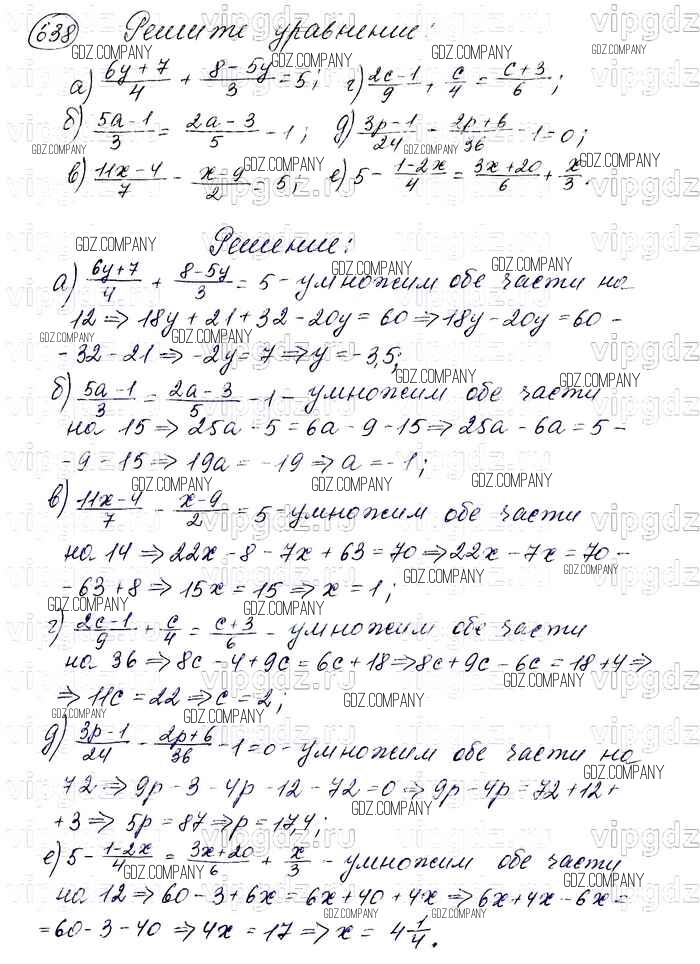 638 Решите уравнение:
а) (6y+7)/4 + (8-5y)/3 = 5; г) (2c-1)/9 + c/4 = (c+3)/6;
б) (5a-1)/3 = (2a-3)/5 - 1; д) (3p-1)/24 - (2p+6)/36 - 1 = 0;
в) (11x-4)/7 - (x-9)/2 = 5; е) 5 - (1-2x)/4 = (3x+20)/6 + x/3.
Решение:
а) (6y+7)/4 + (8-5y)/3 = 5 - умножим обе части на
12 => 18y + 21 + 32 - 20y = 60 => 18y - 20y = 60 -
- 32 - 21 => -2y = 7 => y = -3,5;
б) (5a-1)/3 = (2a-3)/5 - 1 - умножим обе части
на 15 => 25a - 5 = 6a - 9 - 15 => 25a - 6a = 5 -
- 9 - 15 => 19a = -19 => a = -1;
в) (11x-4)/7 - (x-9)/2 = 5 - умножим обе части
на 14 => 22x - 8 - 7x + 63 = 70 => 22x - 7x = 70 -
- 63 + 8 => 15x = 15 => x = 1;
г) (2c-1)/9 + c/4 = (c+3)/6 - умножим обе части
на 36 => 8c - 4 + 9c = 6c + 18 => 8c + 9c - 6c = 18 + 4 =>
=> 11c = 22 => c = 2;
д) (3p-1)/24 - (2p+6)/36 - 1 = 0 - умножим обе части на
72 => 9p - 3 - 4p - 12 - 72 = 0 => 9p - 4p = 72 + 12 +
+ 3 => 5p = 87 => p = 17,4;
е) 5 - (1-2x)/4 = (3x+20)/6 + x/3 - умножим обе части
на 12 => 60 - 3 + 6x = 6x + 40 + 4x => 6x + 4x - 6x =
= 60 - 3 - 40 => 4x = 17 => x = 4 1/4.